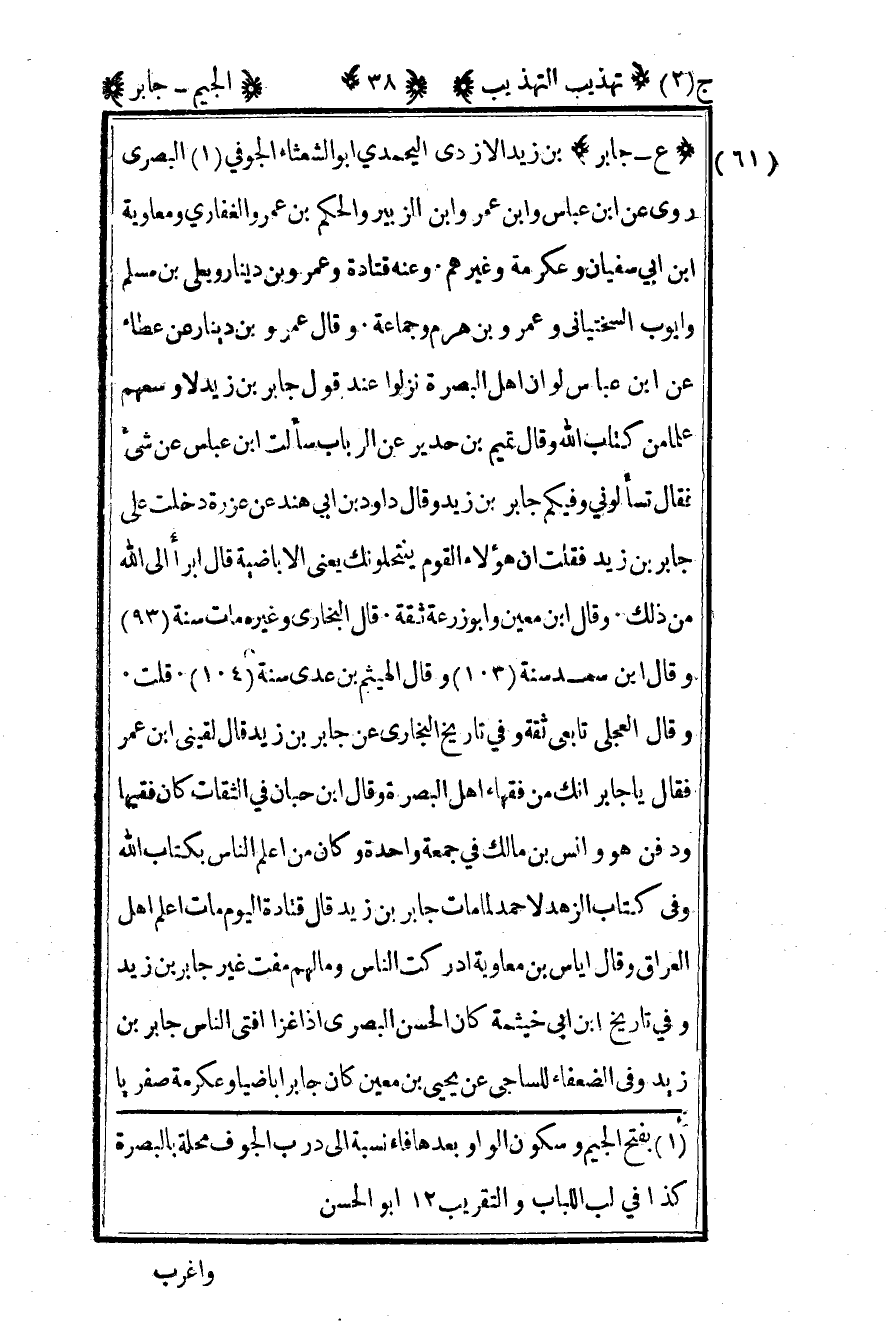 ج(٢) ﴿ تهذيب التهذيب ﴾ ﴿ ٣٨ ﴾ ﴿ الجيم - جابر ﴾
(٦١) ﴿ ع - جابر ﴾ بن زيد الازدى اليحمدي ابو الشعثاء الجوفي (١) البصرى
روى عن ابن عباس وابن عمر وابن الزبير والحكم بن عمرو الغفاري ومعاوية
ابن ابي سفيان و عكرمة وغيرهم ٠ وعنه قتادة وعمرو بن دينار ويعلى بن مسلم
وايوب السختياني و عمرو بن هرم وجماعة ٠ و قال عمرو بن دينار عن عطاء
عن ابن عباس لو ان اهل البصرة نزلوا عند قول جابر بن زيد لاوسعهم
علما من كتاب الله وقال تميم بن حدير عن الرباب سألت ابن عباس عن شئ
فقال تسألوني وفيكم جابر بن زيد وقال داود بن ابي هند عن عزرة دخلت على
جابر بن زيد فقلت ان هؤلاء القوم ينتحلونك يعنى الاباضية قال ابرأ الى الله
من ذلك ٠ وقال ابن معين وابو زرعة ثقة ٠ قال البخارى وغيره مات سنة (٩٣)
و قال ابن سعد سنة (١٠٣) و قال الهيثم بن عدى سنة (١٠٤) ٠ قلت ٠
و قال العجلي تابعى ثقة و في تاريخ البخارى عن جابر بن زيد قال لقينى ابن عمر
فقال يا جابر انك من فقهاء اهل البصرة وقال ابن حبان في الثقات كان فقيها
ودفن هو و انس بن مالك في جمعة واحدة و كان من اعلم الناس بكتاب الله
وفى كتاب الزهد لاحمد لما مات جابر بن زيد قال قتادة اليوم مات اعلم اهل
العراق وقال اياس بن معاوية ادركت الناس ومالهم مفت غير جابر بن زيد
و في تاريخ ابن ابي خيثمة كان الحسن البصرى اذا غزا افتى الناس جابر بن
زيد وفى الضعفاء للساجى عن يحيى بن معين كان جابر اباضيا وعكرمة صفريا
(١) بفتح الجيم و سكون الواو بعدها فاء نسبة الى درب الجوف محلة بالبصرة
كذا في لب اللباب و التقريب ١٢ ابو الحسن
واغرب